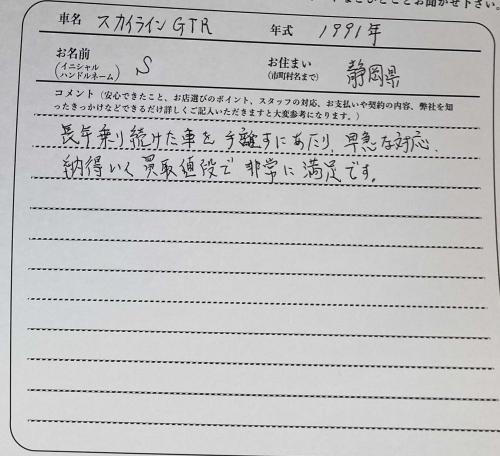 車名 スカイラインGTR 年式 1991年
お名前
(イニシャル
ハンドルネーム) S お住まい
(市町村名まで) 静岡県
コメント(安心できたこと、お店選びのポイント、スタッフの対応、お支払いや契約の内容、弊社を知
ったきっかけなどできるだけ詳しくご記入いただきますと大変参考になります。)
長年乗り続けた車を手離すにあたり、早急な対応、
納得いく買取値段で非常に満足です。